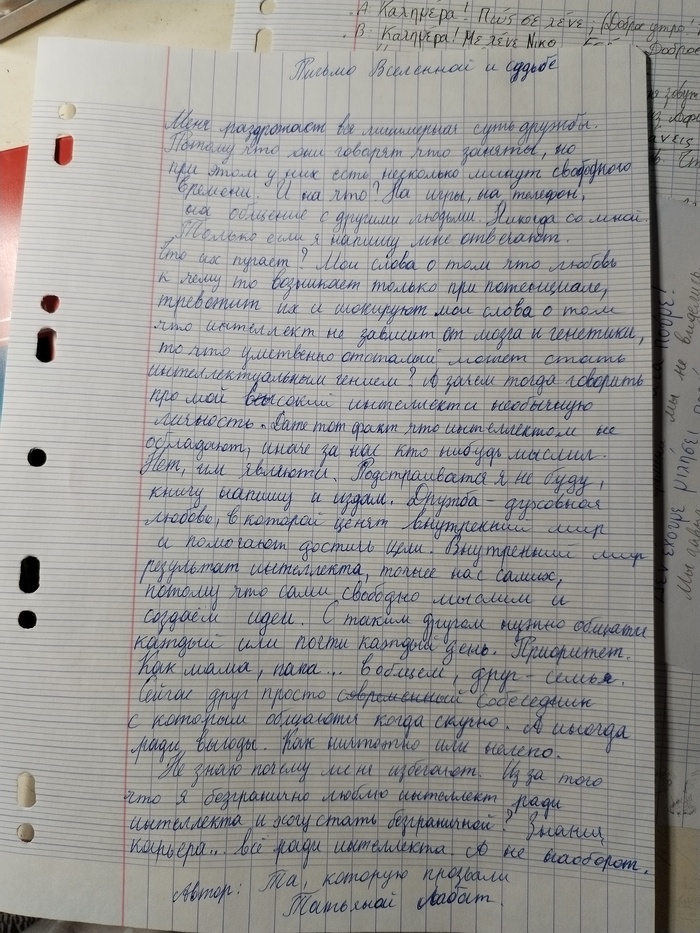 А Καλημέρα! Πώς σε λένε; (Доброе утро
В. Καλημέρα! Με λένε Νικο
Письмо Вселенной и судьбе
Меня раздрожают вся лицимерная суть дружбы.
Потому что они говорят что заняты, но
при этом у них есть несколько минут свободного
времени. И на что? На игры, на телефон,
на общение с другими людьми. Никогда со мной.
Только если я напишу мне отвечают.
Что их пугает? Мои слова о том что любовь
к чему то возникает только при потенциале,
тревотит их и шокируют мои слова о том
что интеллект не зависит от мозга и генетики,
то что умственно отсталый может стать
интеллектуальным гением? А зачем тогда говорить
про мой высокий интеллект и необычную
личность. Дате тот факт что интеллектом не
обладают, иначе за нас кто нибудь мыслил.
Нет, им являются. Подстраиватся я не буду,
книгу напишу и издам. Дружба - духовная
любовь, в которой ценят внутренний мир
и помогают достичь цели. Внутренний мир
результат интеллекта, точнее нас самих,
потому что сами свободно мыслим и
создаём идеи. С таким другом нужно общатся
каждый или почти каждый день. Приоритет.
Как мама, папа... вобщем, друг - семья.
Сейчас друг просто современный собеседник
с которым общаются когда скучно. А иногда
ради выгоды. Как ничтожно или нелепо.
Не знаю почему меня избегают. Из за того
что я безгранично люблю интеллект ради
интеллекта и хочу стать безграничной? Знания,
карьера... всё ради интеллекта А не наоборот.
Автор: Та, которую прозвали
Татьяной Лабат.